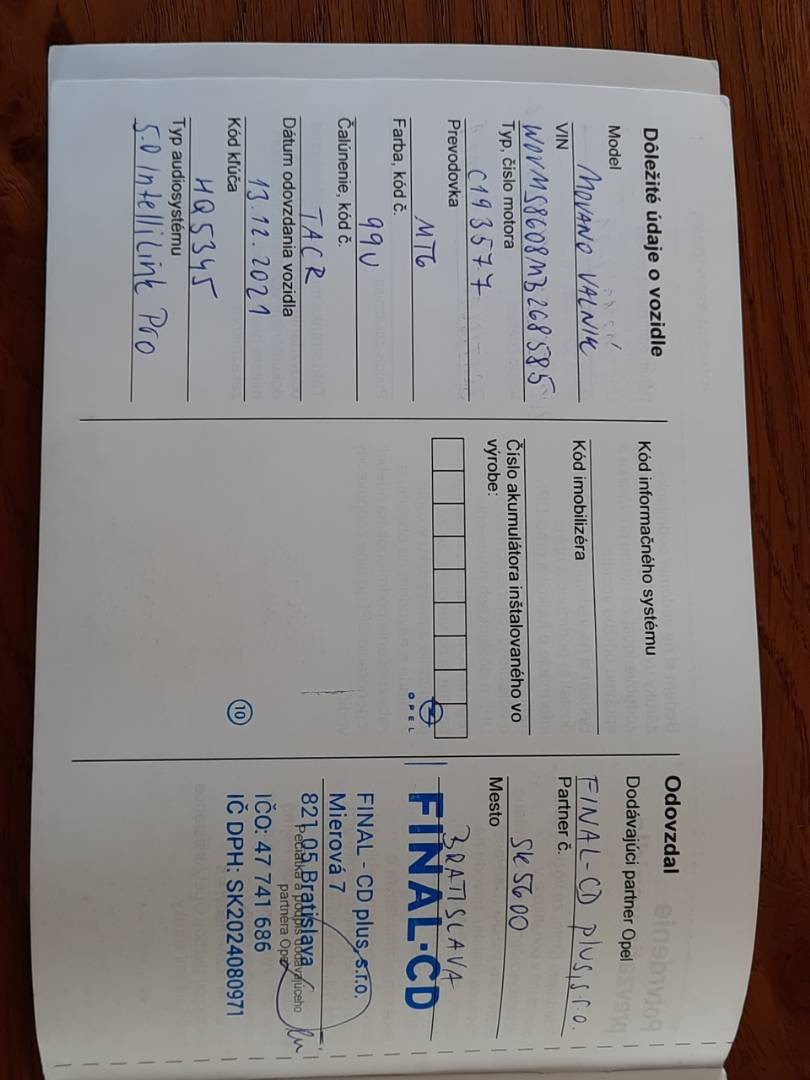 Dôležité údaje o vozidle
Model
MOVANO VALNIK
VIN
W0VMS8608MB268585
Typ, číslo motora
C193577
Prevodovka
MT6
Farba, kód č.
99U
Čalúnenie, kód č.
TACR
Dátum odovzdania vozidla
13.12.2021
Kód kľúča
HQ5345
Typ audiosystému
5.0 IntelliLink Pro
Kód informačného systému
Kód imobilizéra
Číslo akumulátora inštalovaného vo
výrobe:
OPEL
10
Odovzdal
Dodávajúci partner Opel
FINAL-CD plus, s.r.o.
Partner č.
SK5600
Mesto
BRATISLAVA
FINAL-CD
FINAL - CD plus, s.r.o.
Mierová 7
821 05 Bratislava
Pečiatka a podpis dodávajúceho
partnera Opel
IČO: 47 741 686
IČ DPH: SK2024080971